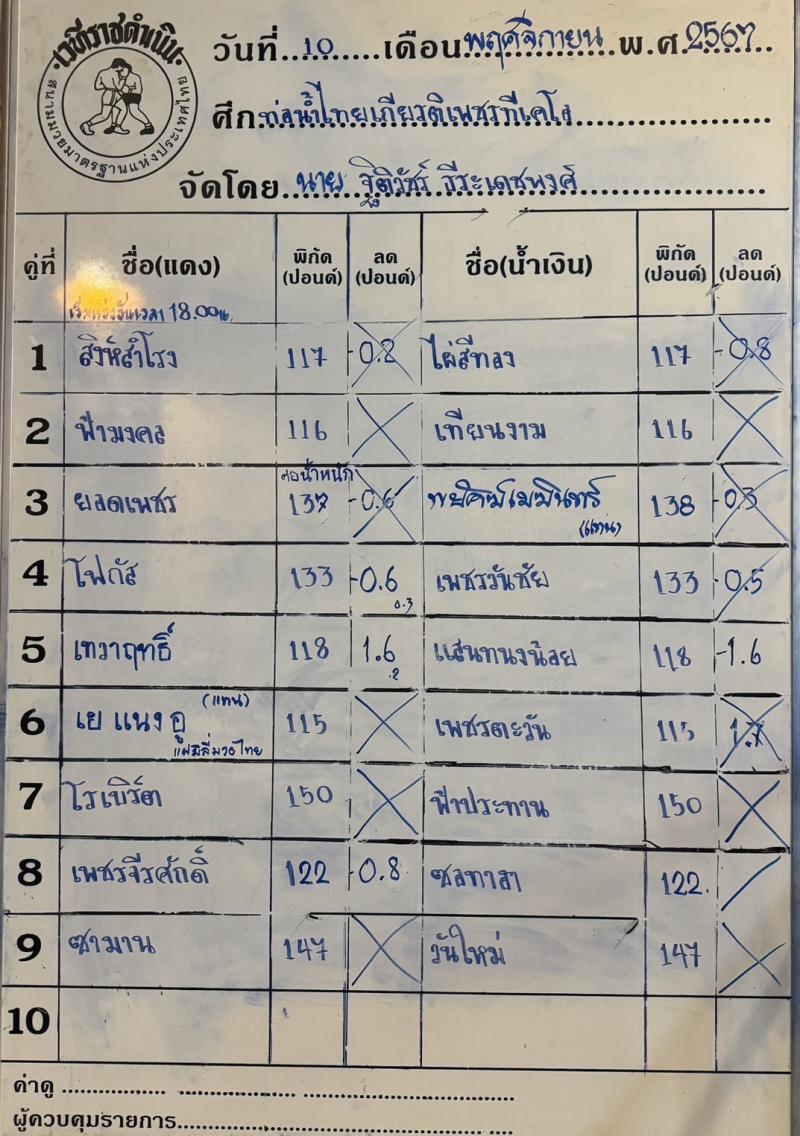 เวทีราชดำเนิน
สนามมวยมาตรฐานแห่งประเทศไทย
วันที่ 10 เดือน พฤศจิกายน พ.ศ. 2567
ศึก ท่อน้ำไทยเกียรติเพชรทีเคโอ
จัดโดย นาย ฐิติวัชร์ ธีระเดชพงศ์
คู่ที่ ชื่อ(แดง) พิกัด (ปอนด์) ลด (ปอนด์) ชื่อ(น้ำเงิน) พิกัด (ปอนด์) ลด (ปอนด์)
เริ่มแข่งขันเวลา 18.00น.
1 สิงห์สำโรง 117 -0.2 ไผ่สีทอง 117 -0.8
2 ฟ้ามงคล 116 เทียนงาม 116
3 ยอดเพชร ต่อน้ำหนัก 137 -0.6 พยัคฆ์เมฆินทร์ (แทน) 138 -0.3
4 โฟกัส 133 -0.6 0.3 เพชรวันชัย 133 -0.5
5 เทวาฤทธิ์ 118 1.6 .2 แสนทนงน้อย 118 -1.6
6 เย แนง อู (แทน) แฝมิลี่มวยไทย 115 เพชรตะวัน 115 1.7
7 โรเบิร์ต 150 ฟ้าประทาน 150
8 เพชรจีรศักดิ์ 122 -0.8 ซลาทาสา 122.
9 ซามาน 147 วันใหม่ 147
10
ค่าดู
ผู้ควบคุมรายการ